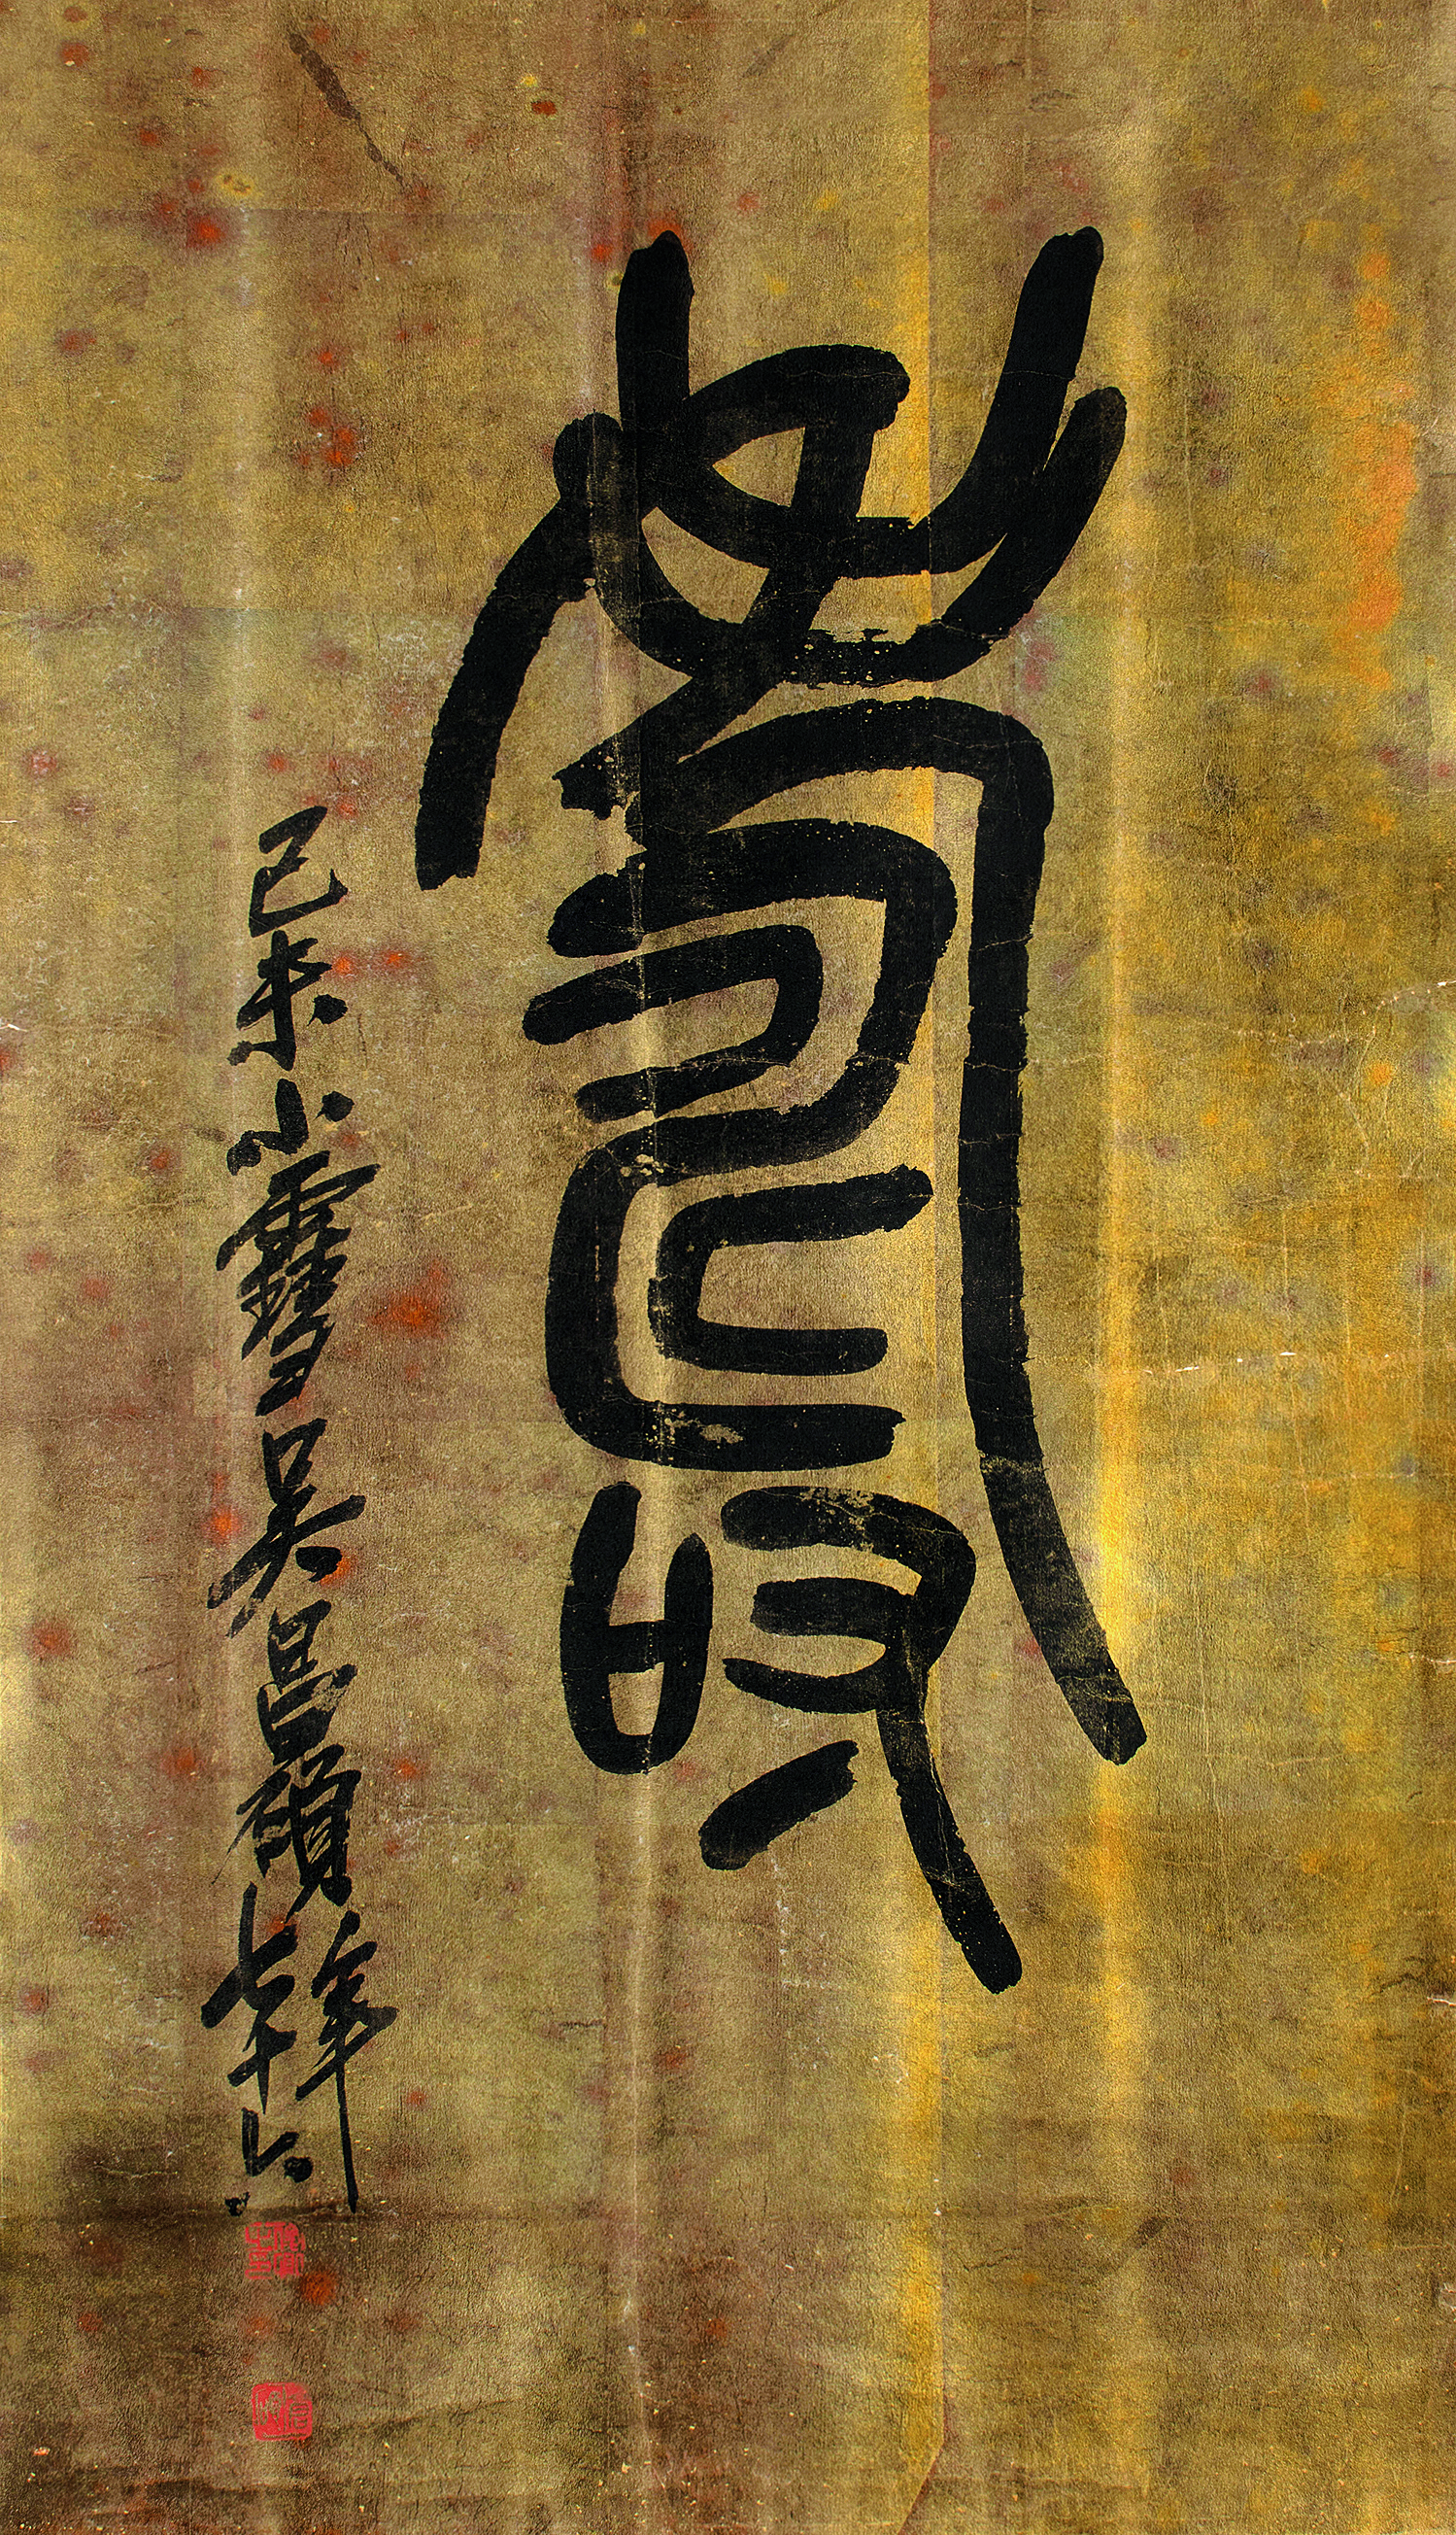 壽
己未小雪吳昌碩年七十六